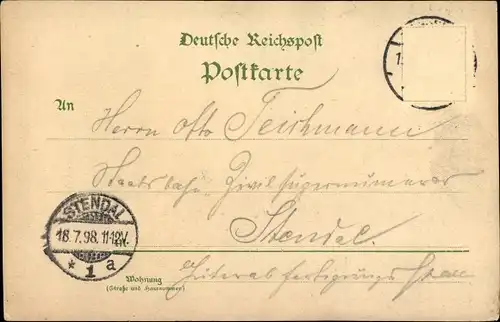 Deutsche Reichspost
Postkarte
An
Herrn Otto Teichmann
Staatsbahn Zivilsupernumerar
Stendal.
STENDAL
18.7.98. 11-12V.
* 1 a
Wohnung
(Straße und Hausnummer)